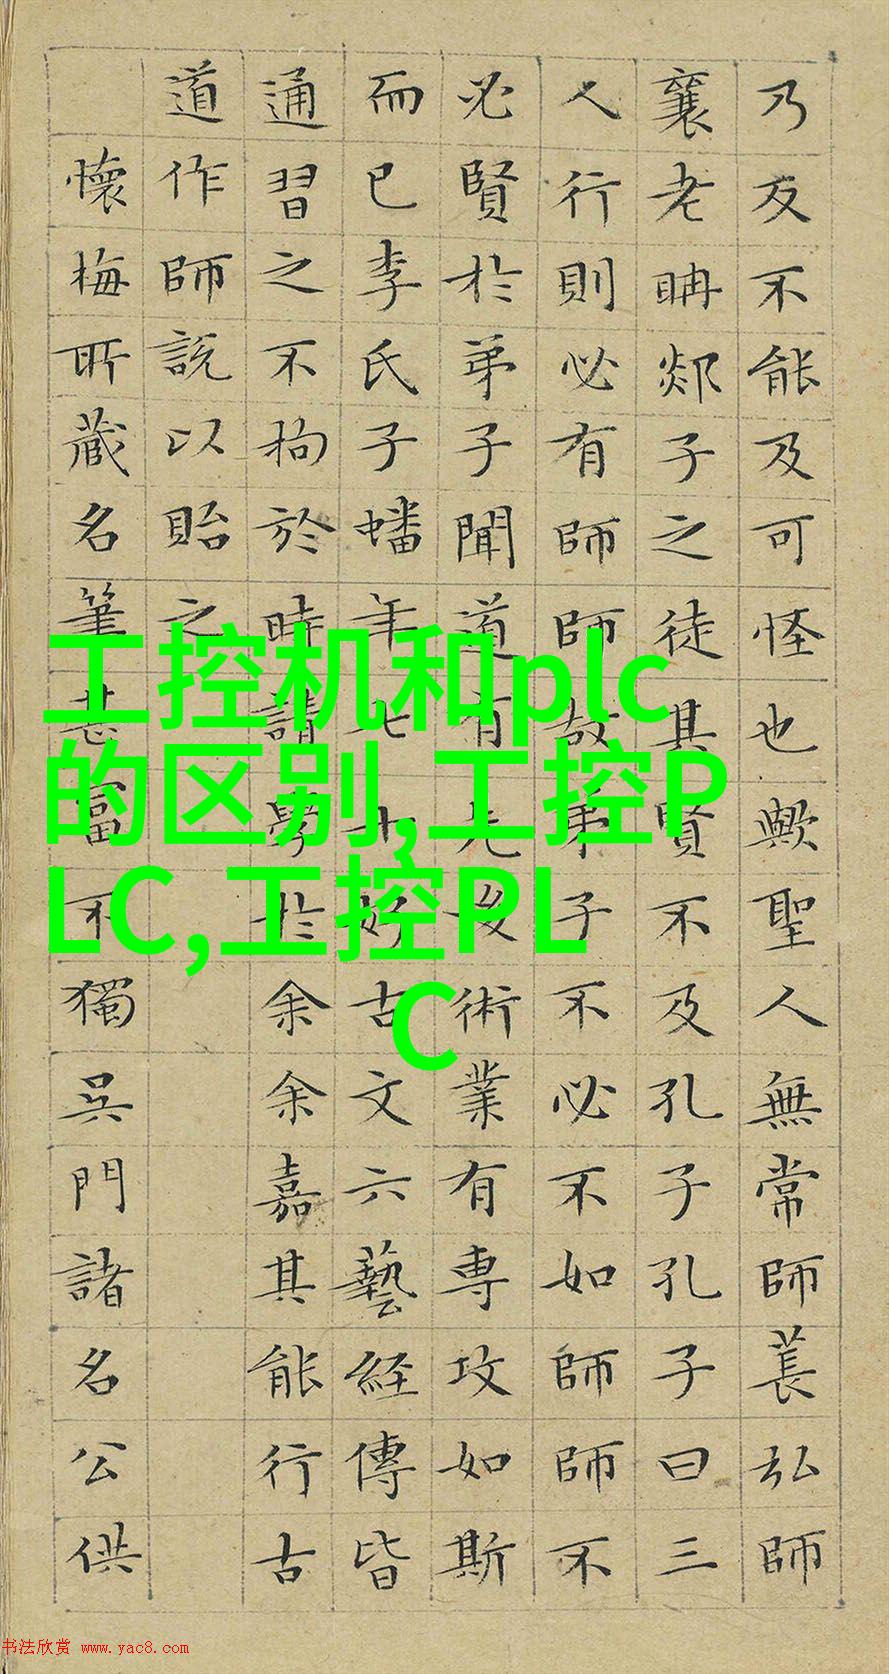 乃反不能及可怪也歟聖人無常師萇弘師
襄老聃郯子之徒其賢不及孔子孔子曰三
人行則必有師師故弟子不必不如師師不
必賢於弟子聞道有先後術業有專攻如斯
而已李氏子蟠年七十好古文六藝経傳皆
通習之不拘於時請學於余余嘉其能行古
道作師説以貽之
懷梅所蔵名筆甚富不獨吳門諸名公供
工控机和plc
的区别,工控P
LC,工控PL
C
书法欣赏 www.yac8.com